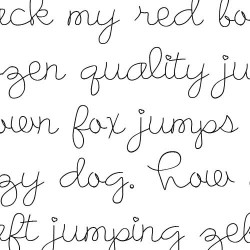 eck my red bo
zen quality ju
own fox jumps
zy dog. How
eft jumping zeb